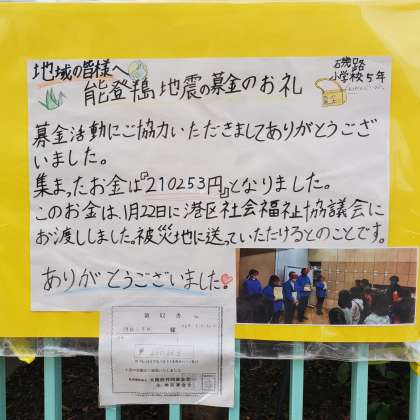 地域の皆様へ
磯路
小学校5年
能登半島地震の募金のお礼
募金活動にご協力いただきましてありがとうござ
いました。
集まったお金は『210253円』となりました。
このお金は、1月22日に港区社会福祉協議会に
お渡ししました。被災地に送っていただけるとのことです。
ありがとうございました。
領収書
様